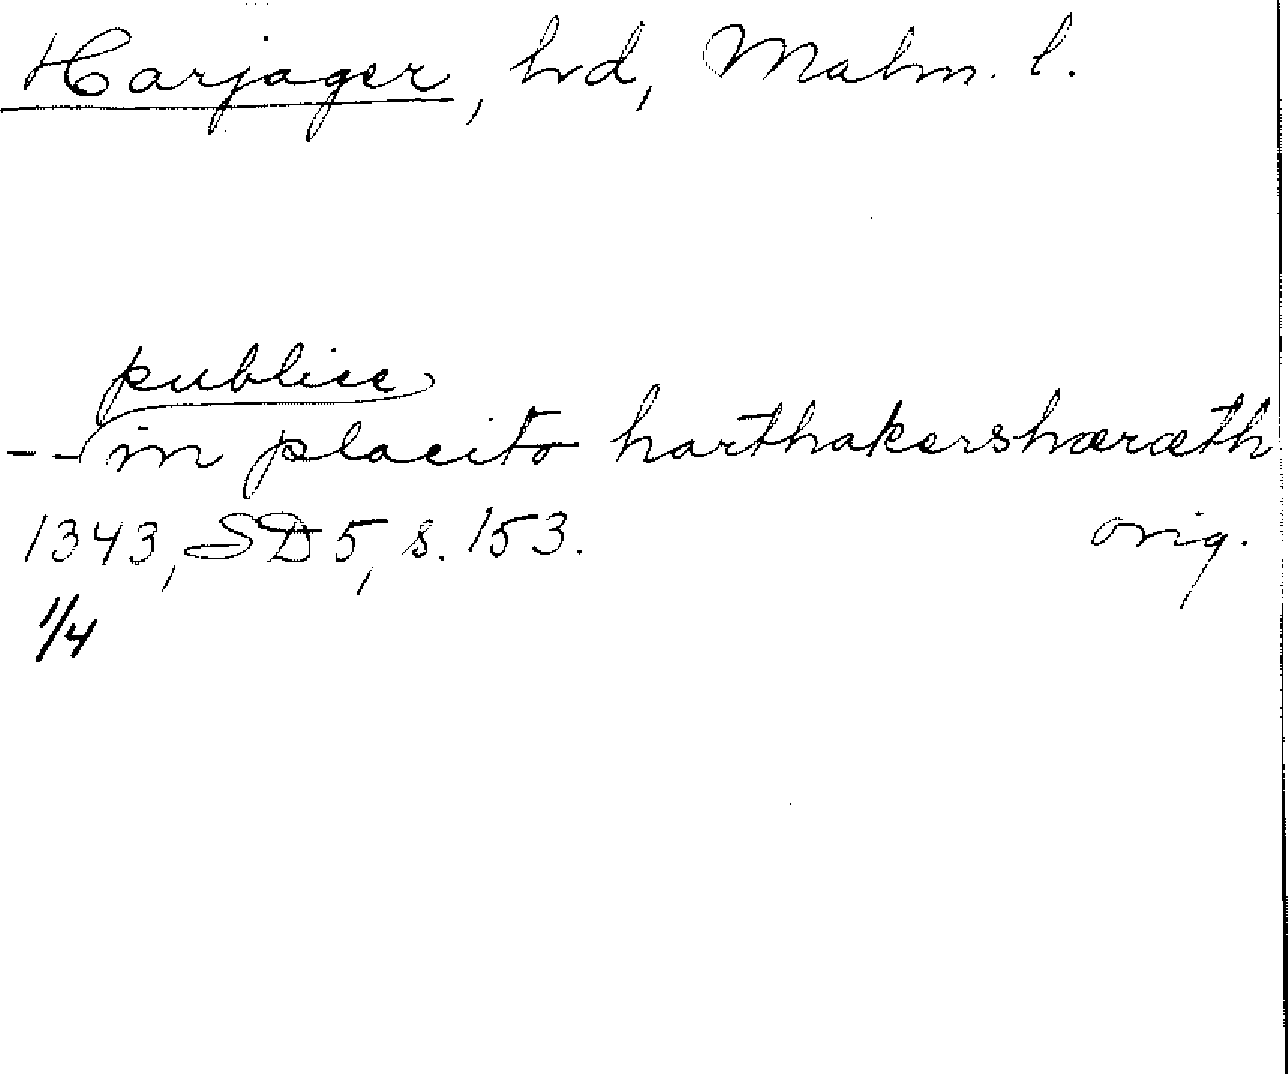 Harjager, hrd, Malm. l.
publice
-- in placito harthakershæræth
1343, SD 5, s. 153. orig.
1/4